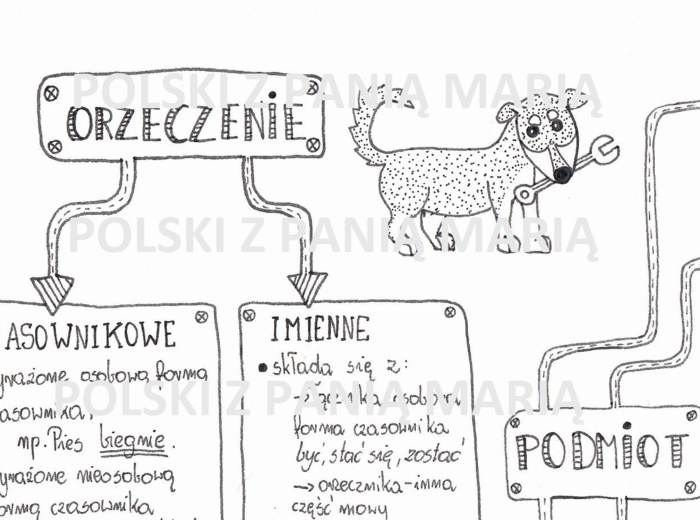 POLSKI Z PANIĄ MARIĄ
ORZECZENIE
POLSKI Z PANIĄ MARIĄ
ASOWNIKOWE
yrażone osobową formą
asownika,
np. Pies biegnie.
yrażone nieosobową
ormą czasownika
IMIENNE
• składa się z:
→ łącznika - osobowa
forma czasownika
być, stać się, zostać
→ orzecznika - inna
część mowy
POLSKI Z PANIĄ MARIĄ
PODMIOT